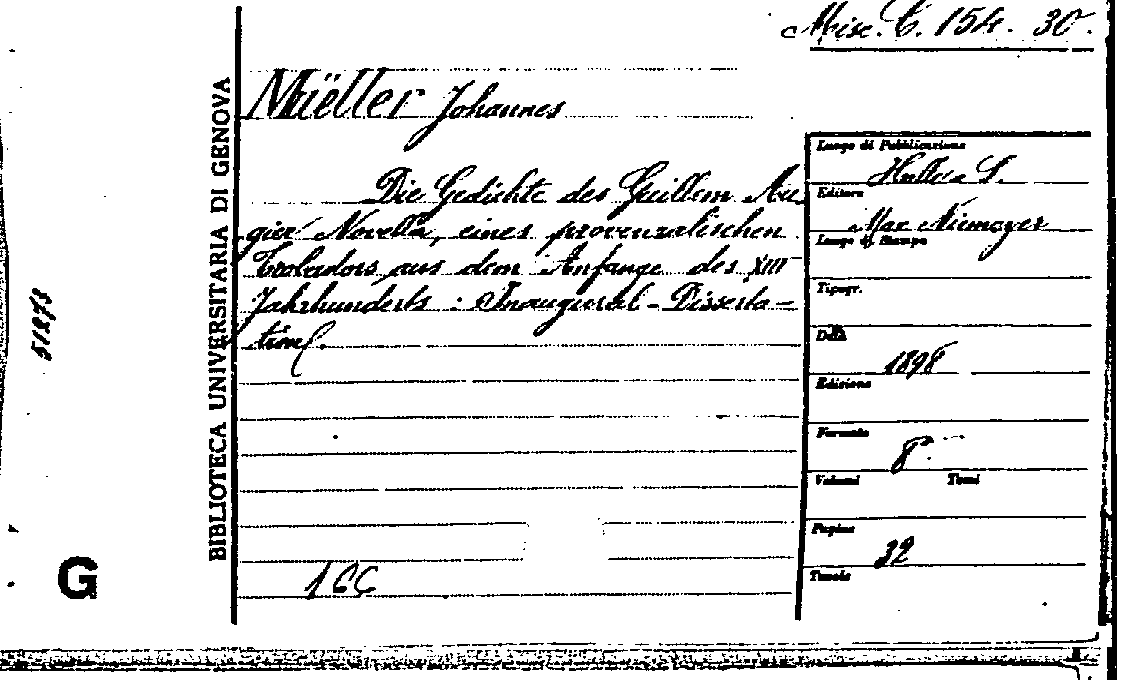 Misc. C. 154. 30.
Müeller Johannes
Die Gedichte des Guillem Au
gier Novella, eines provenzalischen
Trobadors aus dem Anfange des XIII
Jahrhunderts : Inaugural-Disserta-
tion.
166
Luogo di Pubblicazione
Halle a S.
Editore
Max Niemeyer
Luogo di Stampa
Tipogr.
Data
1898
Edizione
Formato
8°
Volumi Tomi
Pagine
32
Tavole
BIBLIOTECA UNIVERSITARIA DI GENOVA
51273
G